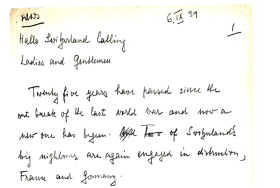 NEWS
6.IX 39
1
Hallo Switzerland Calling
Ladies and Gentlemen
Twenty five years have passed since the
out break of the last world war and now a
new one has begun. Two of Switzerland's
big neighbours are again engaged in
France and Germany.